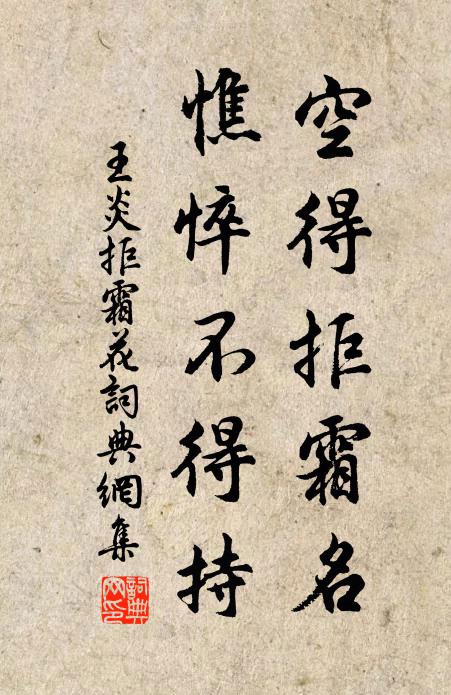 空得拒霜名
憔悴不得持
王炎拒霜花詞典網集
詞典網印